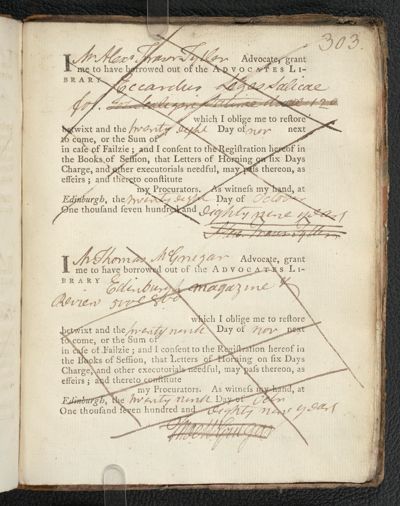 303.
I Mr Alexr Fraser Tytler Advocate, grant
me to have borrowed out of the ADVOCATES LI-
BRARY Eccardus Leges Salicae
fol.
which I oblige me to restore
betwixt and the twenty eight Day of nov next
to come, or the Sum of
in case of Failzie; and I consent to the Registration hereof in
the Books of Session, that Letters of Horning on six Days
Charge, and other executorials needful, may pass thereon, as
effeirs; and thereto constitute
my Procurators. As witness my hand, at
Edinburgh, the twenty eight Day of Octobr
One thousand seven hundred and eighty nine years
I Mr Thomas McGrugar Advocate, grant
me to have borrowed out of the ADVOCATES LI-
BRARY Edinburgh magazine &
Review
which I oblige me to restore
betwixt and the twenty ninth Day of nov next
to come, or the Sum of
in case of Failzie; and I consent to the Registration hereof in
the Books of Session, that Letters of Horning on six Days
Charge, and other executorials needful, may pass thereon, as
effeirs; and thereto constitute
my Procurators. As witness my hand, at
Edinburgh, the twenty ninth Day of
One thousand seven hundred and eighty nine years